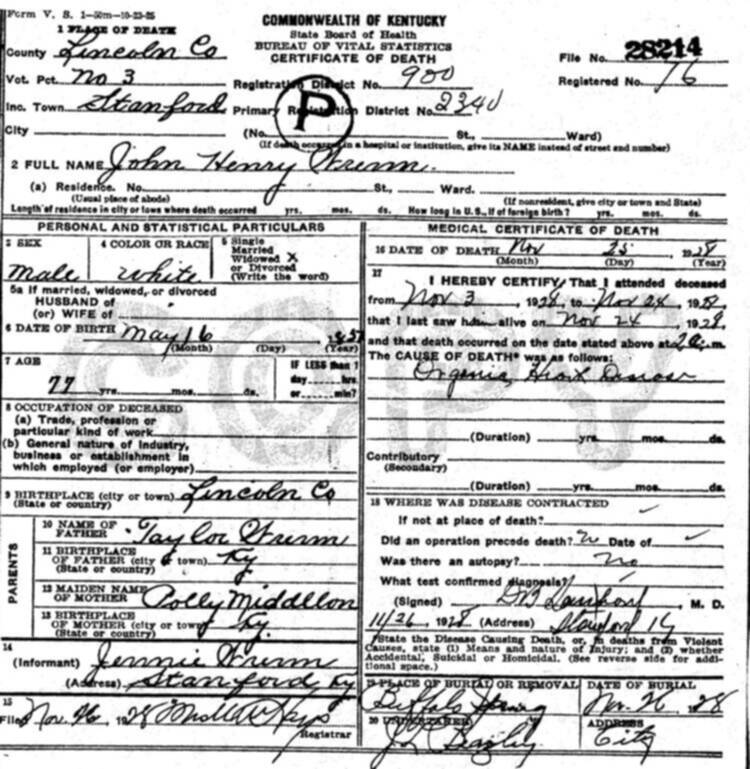 Form V. S. 1-50m-10-23-25
COMMONWEALTH OF KENTUCKY
State Board of Health
BUREAU OF VITAL STATISTICS
CERTIFICATE OF DEATH
1 PLACE OF DEATH
County Lincoln Co
File No. 28214
Vot. Pct. No 3
Registration District No. 900
Registered No. 76
Inc. Town Stanford
Primary Registration District No. 2340
P
City
(No. St., Ward)
(If death occurred in a hospital or institution, give its NAME instead of street and number)
2 FULL NAME John Henry
(a) Residence. No. St., Ward.
(Usual place of abode) (If nonresident, give city or town and State)
Length of residence in city or town where death occurred yrs. mos. ds. How long in U.S., if of foreign birth? yrs. mos. ds.
PERSONAL AND STATISTICAL PARTICULARS
3 SEX 4 COLOR OR RACE 5 Single
Married
Widowed X
or Divorced
(Write the word)
Male White
5a If married, widowed, or divorced
HUSBAND of
(or) WIFE of
6 DATE OF BIRTH May 16
(Month) (Day) (Year)
7 AGE
77 yrs. mos. ds.
IF LESS than 1
day hrs.
or min?
8 OCCUPATION OF DECEASED
(a) Trade, profession or
particular kind of work
(b) General nature of industry,
business or establishment in
which employed (or employer)
9 BIRTHPLACE (city or town) Lincoln Co
(State or country)
PARENTS
10 NAME OF
FATHER Taylor
11 BIRTHPLACE
OF FATHER (city or town) Ky
(State or country)
12 MAIDEN NAME
OF MOTHER Polly Middleton
13 BIRTHPLACE
OF MOTHER (city or town) Ky.
(State or country)
14
(Informant) Jennie
(Address) Stanford Ky
15
Filed Nov. 26, 1928
Registrar
MEDICAL CERTIFICATE OF DEATH
16 DATE OF DEATH Nov 25 1928
(Month) (Day) (Year)
17
I HEREBY CERTIFY, That I attended deceased
from Nov 3, 1928, to Nov 24, 1928,
that I last saw him alive on Nov 24, 1928,
and that death occurred on the date stated above at m.
The CAUSE OF DEATH* was as follows:
Organic Heart Disease
(Duration) yrs. mos. ds.
Contributory
(Secondary)
(Duration) yrs. mos. ds.
18 WHERE WAS DISEASE CONTRACTED
If not at place of death?
Did an operation precede death? No Date of
Was there an autopsy? No
What test confirmed diagnosis?
(Signed) M. D.
11/26, 1928 (Address) Stanford Ky
*State the Disease Causing Death, or, in deaths from Violent
Causes, state (1) Means and nature of Injury; and (2) whether
Accidental, Suicidal or Homicidal. (See reverse side for addi-
tional space.)
19 PLACE OF BURIAL OR REMOVAL DATE OF BURIAL
Buffalo Spring Nov. 26 28
20 UNDERTAKER ADDRESS
City
COPY